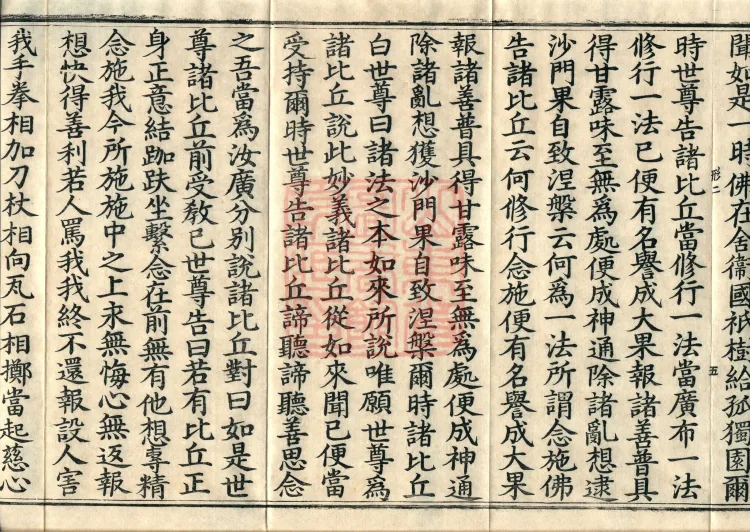 聞如是一時佛在舍衞國祇樹給孤獨園爾
形二
五
時世尊告諸比丘當修行一法當廣布一法
修行一法已便有名譽成大果報諸善普具
得甘露味至無爲處便成神通除諸亂想逮
沙門果自致涅槃云何爲一法所謂念施佛
告諸比丘云何修行念施便有名譽成大果
報諸善普具得甘露味至無爲處便成神通
除諸亂想獲沙門果自致涅槃爾時諸比丘
白世尊曰諸法之本如來所說唯願世尊爲
諸比丘說此妙義諸比丘從如來聞已便當
受持爾時世尊告諸比丘諦聽諦聽善思念
之吾當爲汝廣分別說諸比丘對曰如是世
尊諸比丘前受教已世尊告曰若有比丘正
身正意結跏趺坐繫念在前無有他想專精
念施我今所施施中之上永無悔心無返報
想快得善利若人罵我我終不還報設人害
我手拳相加刀杖相向瓦石相擲當起慈心